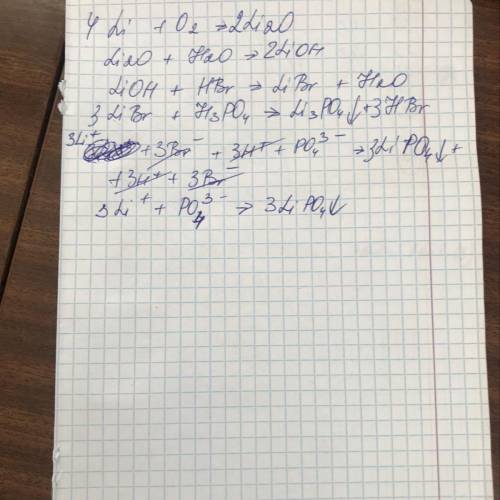 4 Li + O₂ → 2Li₂O
Li₂O + H₂O → 2LiOH
LiOH + HBr → LiBr + H₂O
3 LiBr + H₃PO₄ → Li₃PO₄↓ + 3HBr
3Li⁺ + 3Br⁻ + 3H⁺ + PO₄³⁻ → 3LiPO₄↓ +
+ 3H⁺ + 3Br⁻
3Li⁺ + PO₄³⁻ → 3LiPO₄↓